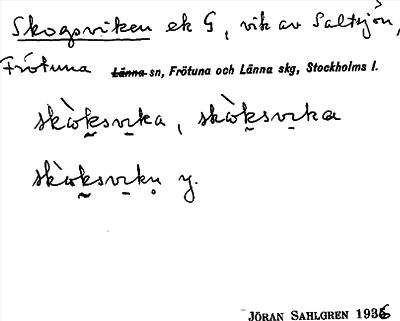 Skogsviken ek G, vik av Saltsjön,
Frötuna Länna sn, Frötuna och Länna skg, Stockholms l.
skὼk̰svi̱ka, skὼk̰svi̱kα
skὼk̰svi̱kn̥ y.
JÖRAN SAHLGREN 1936